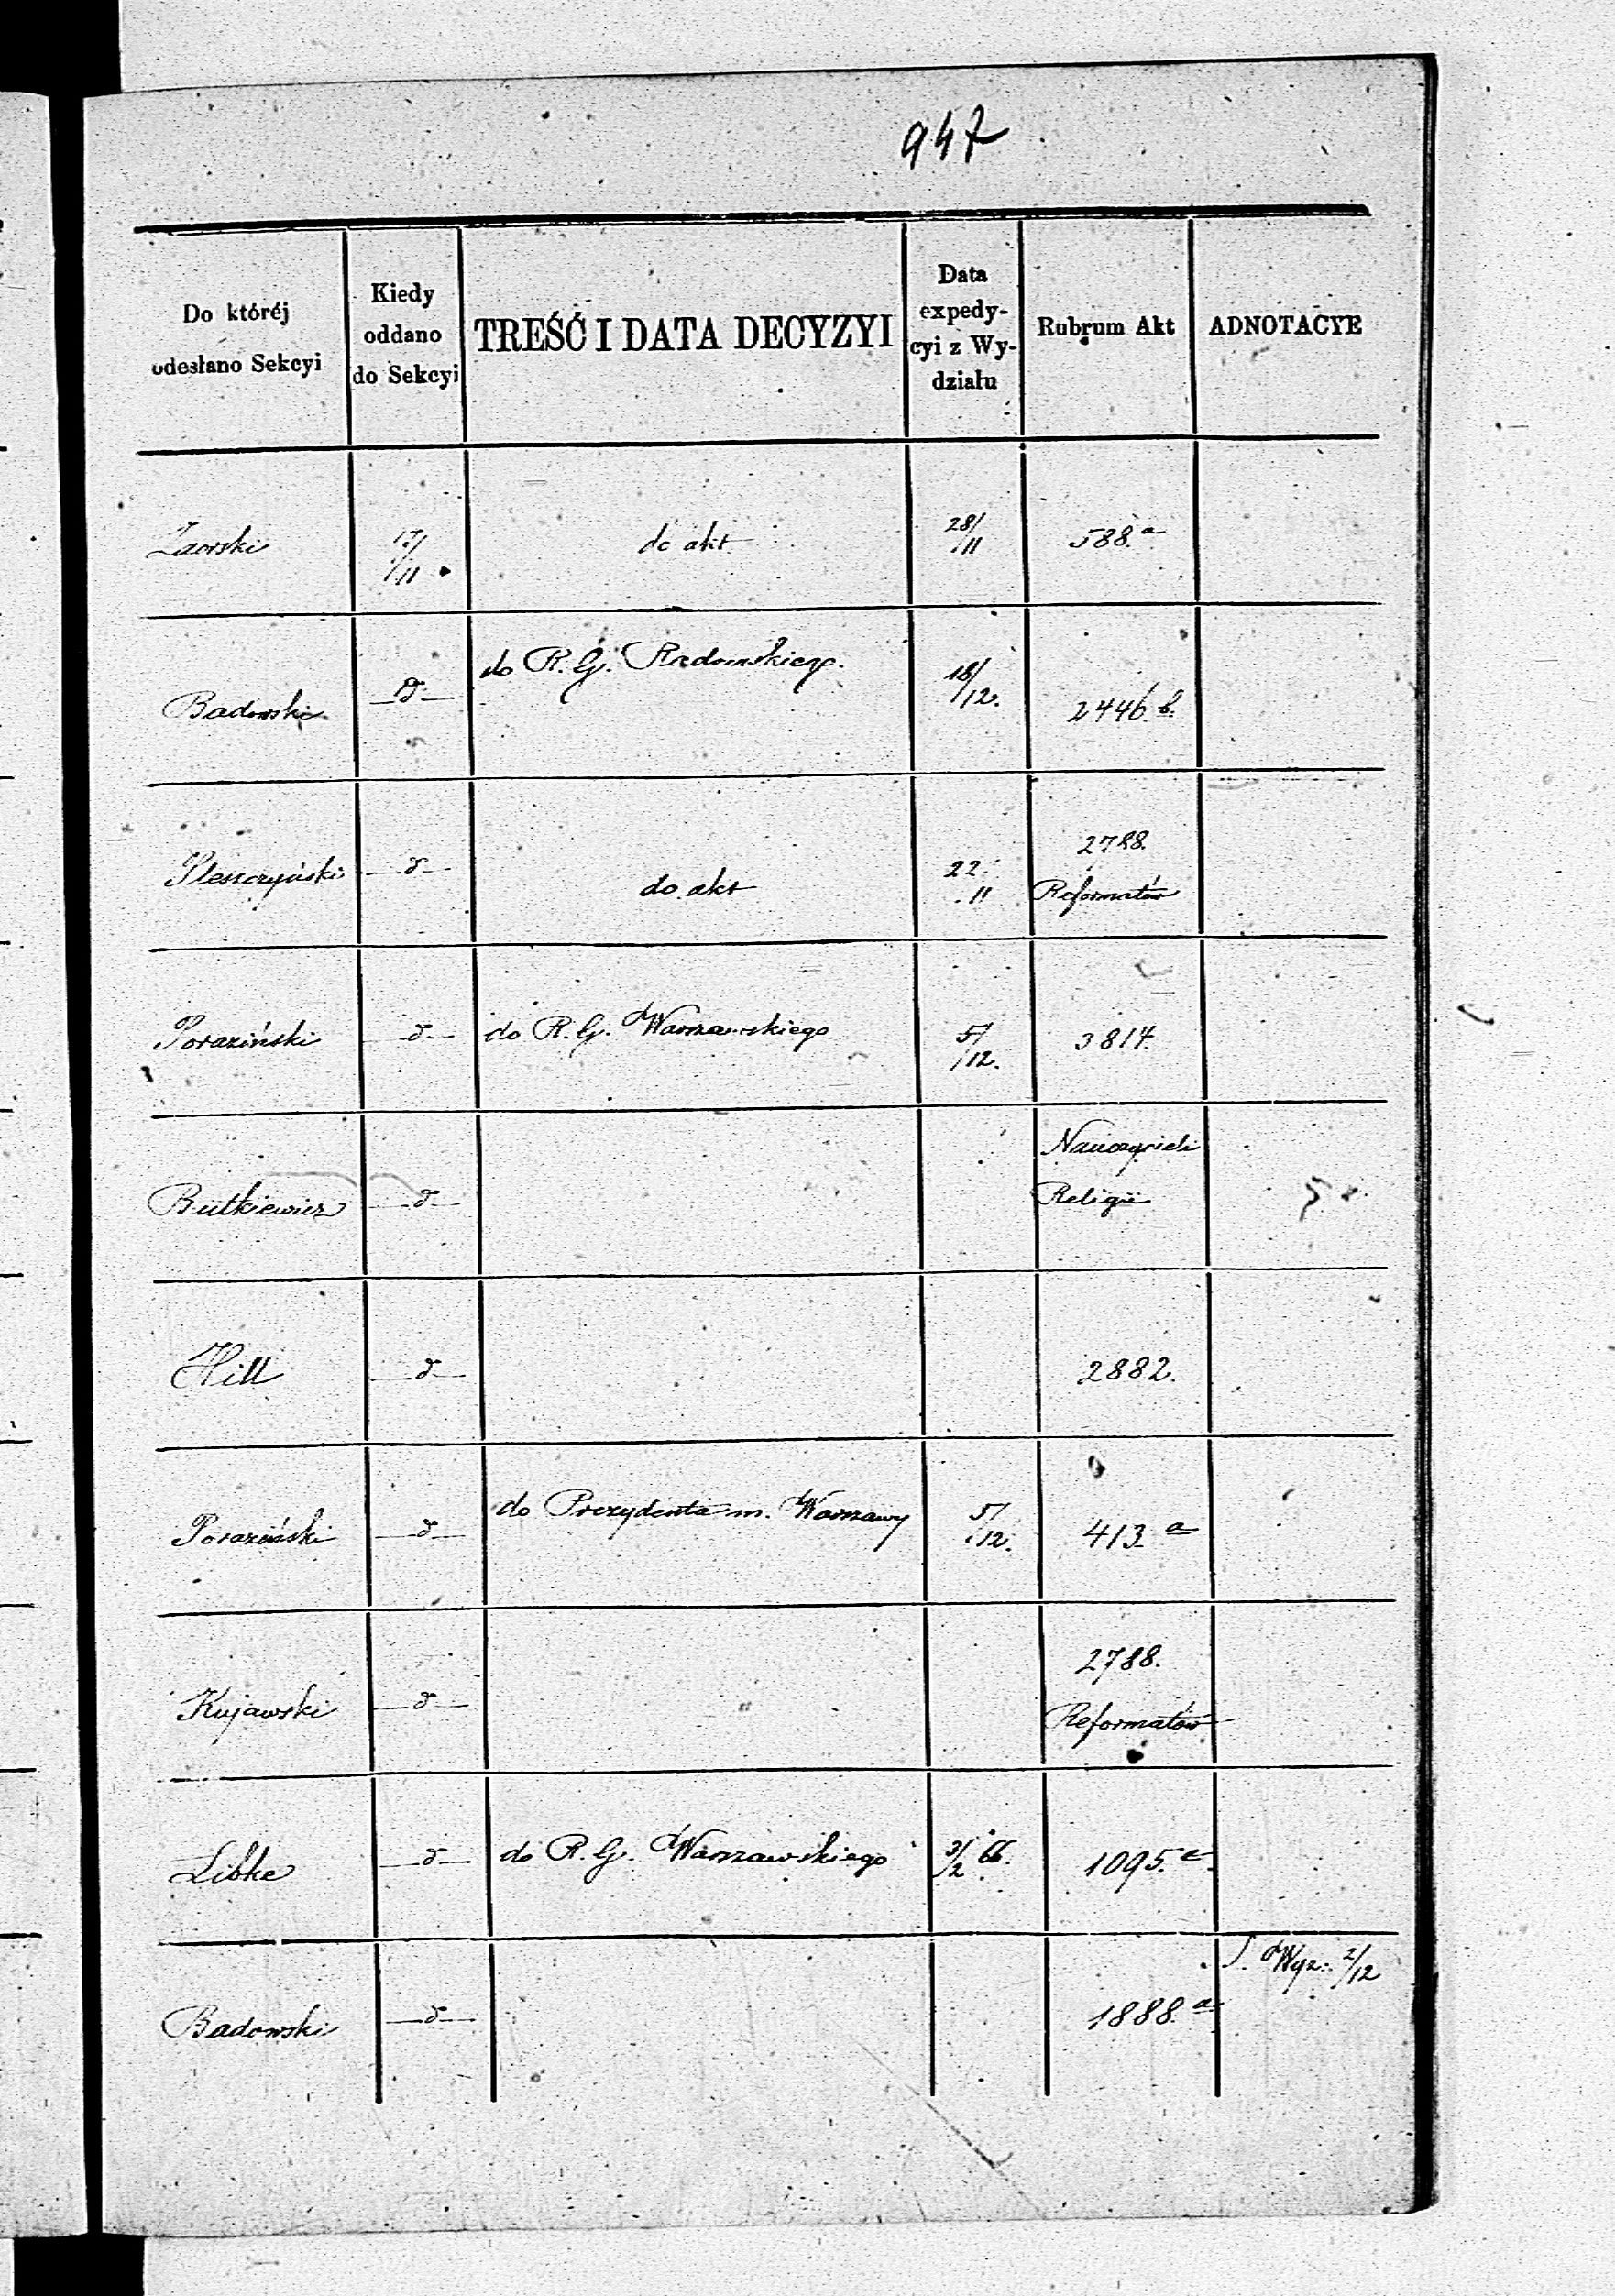 947
Do któréj
odesłano Sekcyi
Kiedy
oddano
do Sekcyi
TREŚĆ I DATA DECYZYI
Data
expedy-
cyi z Wy-
działu
Rubrum Akt
ADNOTACYE
Zaorski
17/11
do akt
28/11
588.a
Badowski
d
do R. G. Radomskiego.
18/12.
2446 b.
Pleszczyński
d
do akt
22.
11
2788.
Reformatów
Poraziński
d
do R. G. Warszawskiego
5/12.
3814.
Butkiewicz
d
Nauczycieli
Religii
Hill
d
2882.
Poraziński
d
do Prezydenta m. Warszawy
5/12.
413 a
Kujawski
d
2788.
Reformatów
Libke
d
do R. G. Warszawskiego
3/2 66.
1095.
Badowski
d
1888. a
Wyz. 2/12